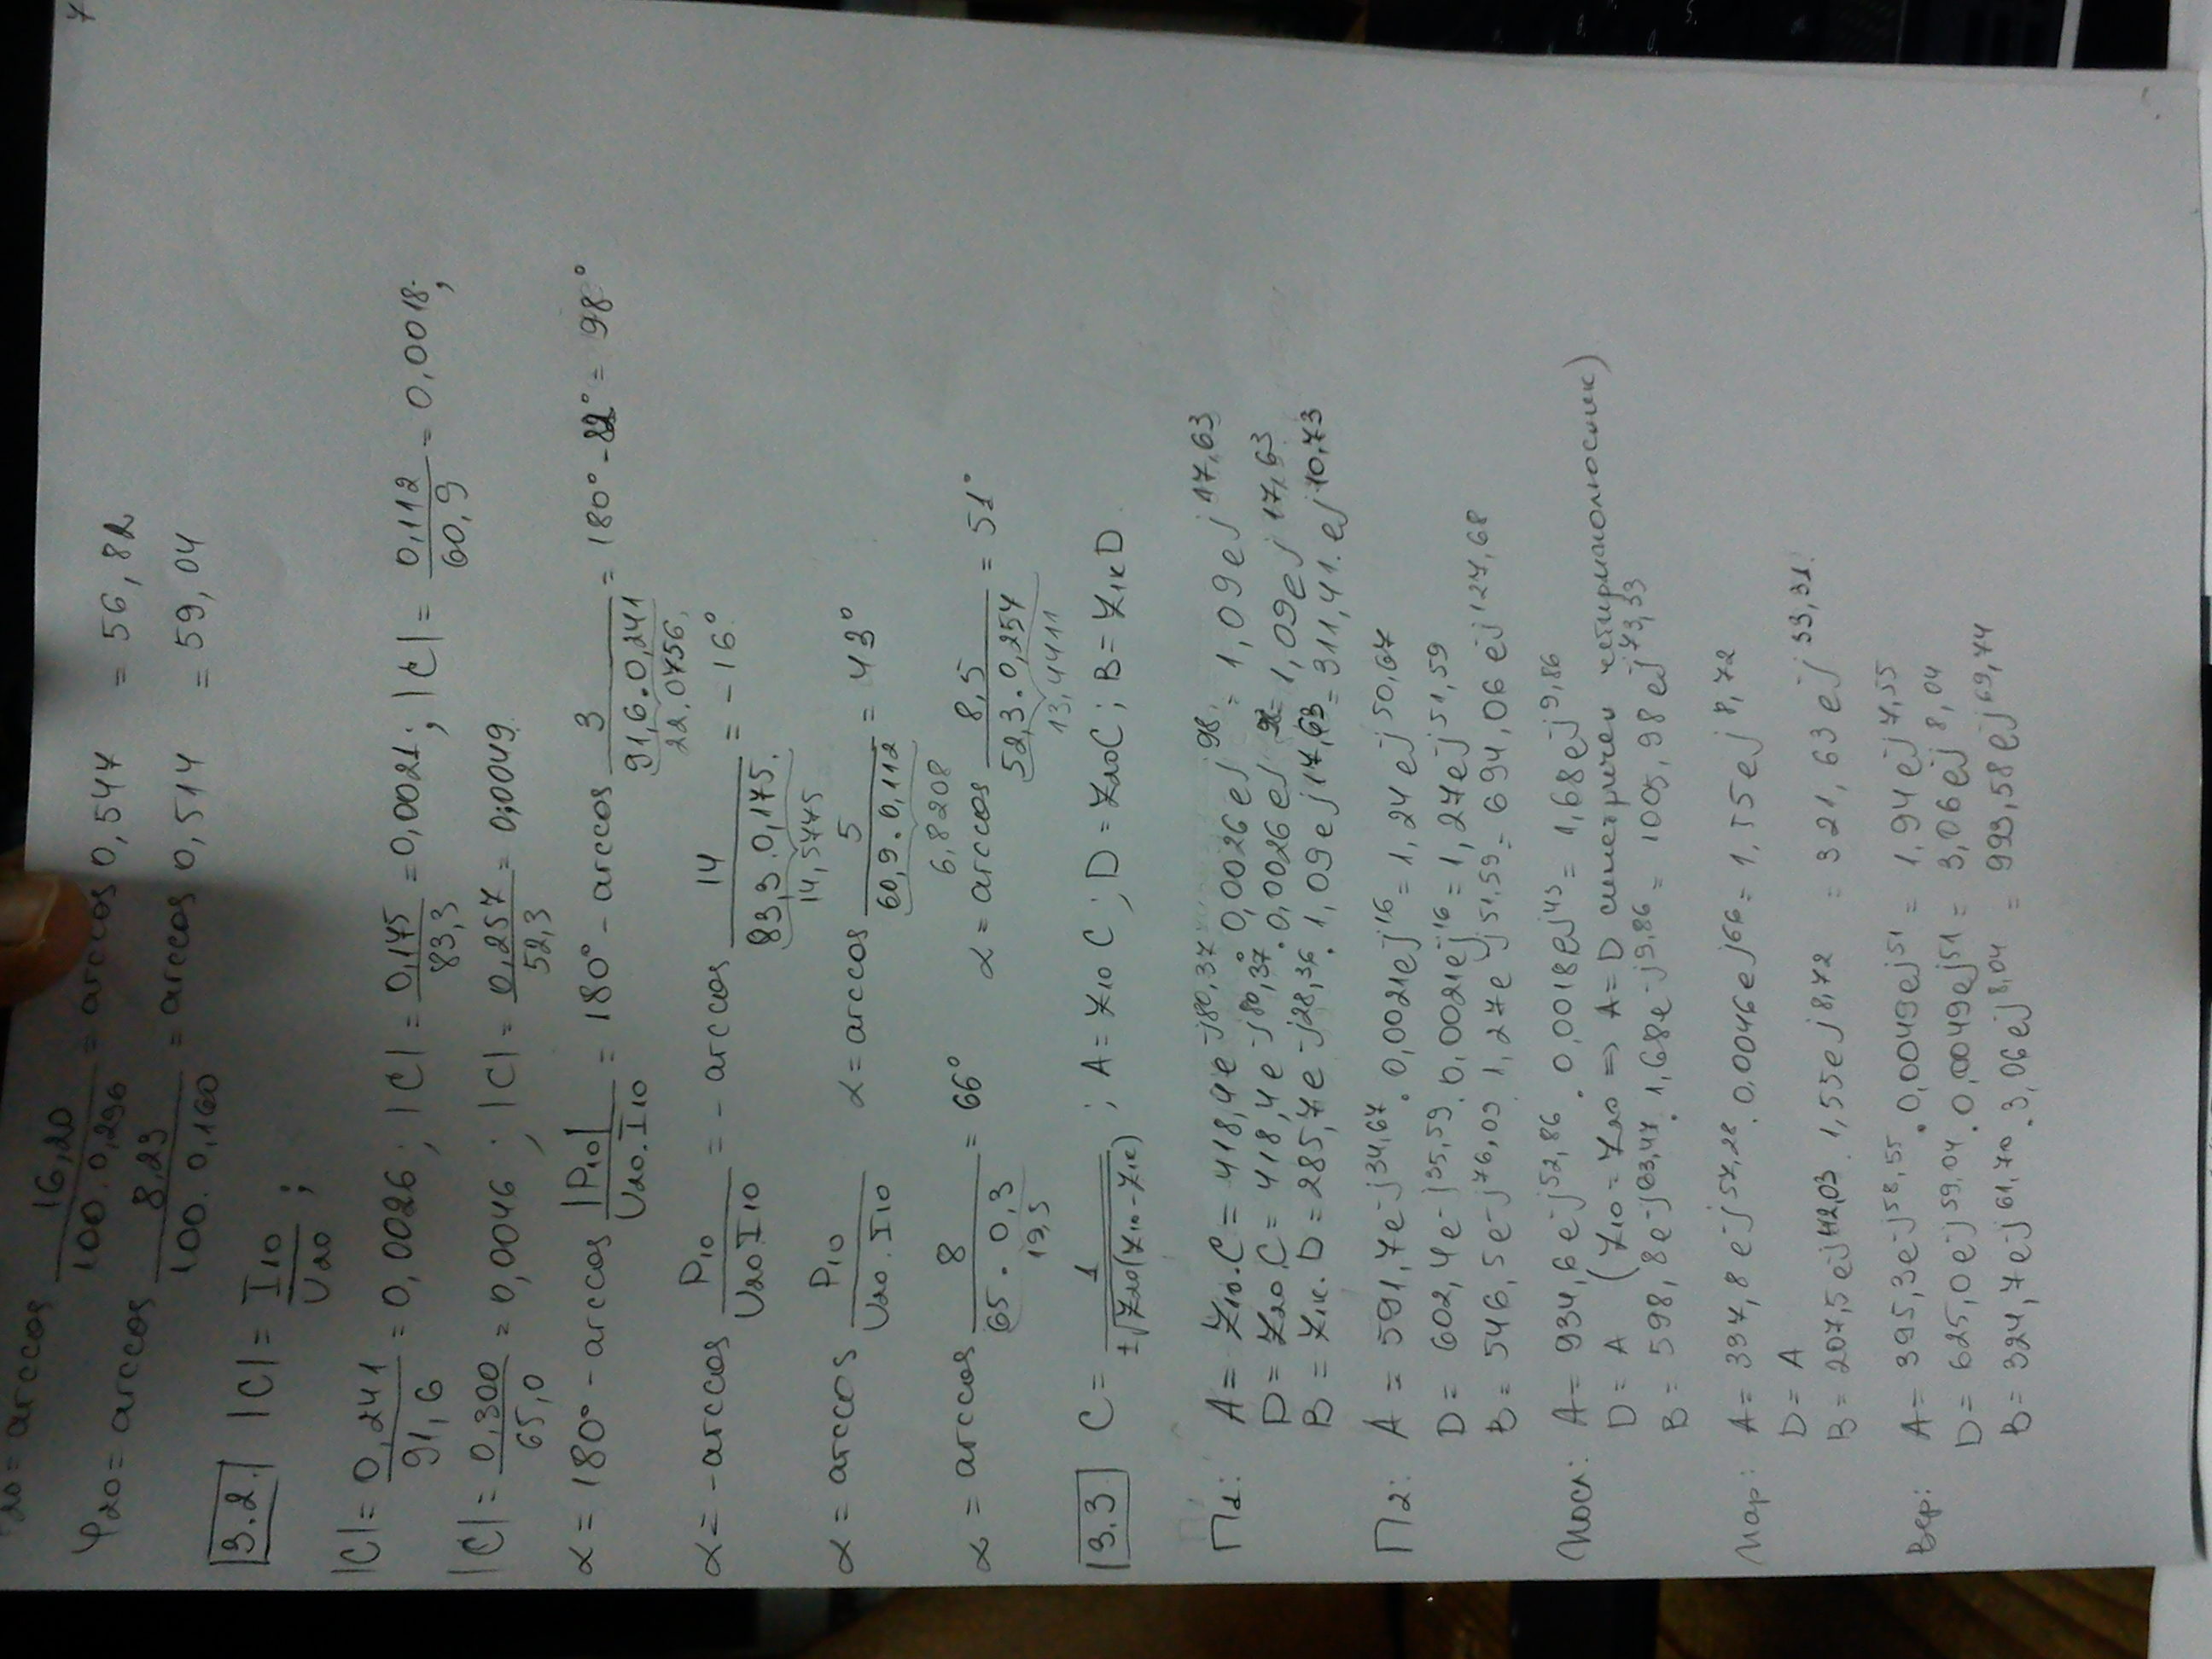 7
φ₂₀ = arccos 16,20 / 100.0,296 = arccos 0,547 = 56,82
φ₂₀ = arccos 8,23 / 100.0,160 = arccos 0,514 = 59,04
3.2. |C| = I₁₀ / U₂₀ ;
|C| = 0,241 / 91,6 = 0,0026 ; |C| = 0,175 / 83,3 = 0,0021 ; |C| = 0,112 / 60,9 = 0,0018 ;
|C| = 0,300 / 65,0 = 0,0046 ; |C| = 0,257 / 52,3 = 0,0049
α = 180° - arccos |P₁₀| / U₂₀.I₁₀ = 180° - arccos 3 / 91,6.0,241 = 180° - 82° = 98°
22,0756
α = -arccos P₁₀ / U₂₀I₁₀ = - arccos 14 / 83,3.0,175 = -16°
14,5775
α = arccos P₁₀ / U₂₀.I₁₀ α = arccos 5 / 60,9.0,112 = 43°
6,8208
α = arccos 8 / 65.0,3 = 66° α = arccos 8,5 / 52,3.0,257 = 51°
19,5 13,4411
3.3 C = 1 / ±√Z₂₀(Z₁₀-Z₁к) ; A = Z₁₀C ; D = Z₂₀C ; B = Z₁кD
П1: A = Z₁₀.C = 418,4e^-j80,37 . 0,0026ej^98 = 1,09ej^17,63
D = Z₂₀C = 418,4e^-j80,37 . 0,0026ej^98 = 1,09ej^17,63
B = Z₁к.D = 285,7e^-j28,36 . 1,09ej^17,63 = 311,41.ej^10,73
П2: A = 591,7e^-j34,67 . 0,0021ej^16 = 1,24ej^50,67
D = 602,4e^-j35,59 . 0,0021ej^16 = 1,27ej^51,59
B = 546,5e^-j76,09 . 1,27ej^51,59 = 694,06ej^127,68
Посл: A = 934,6e^-j52,86 . 0,0018ej^43 = 1,68ej^9,86
D = A (Z₁₀ = Z₂₀ => A = D симетричен четириполюсник)
B = 598,8e^-j83,47 . 1,68e^-j9,86 = 1005,98ej^73,33
Пар: A = 337,8ej^57,28 . 0,0046ej^66 = 1,55ej^8,72
D = A
B = 207,5ej^42,03 . 1,55ej^8,72 = 321,63ej^33,31
Вер: A = 395,3ej^58,55 . 0,0049ej^51 = 1,94ej^7,55
D = 625,0ej^59,04 . 0,0049ej^51 = 3,06ej^8,04
B = 324,7ej^61,70 . 3,06ej^8,04 = 993,58ej^69,74